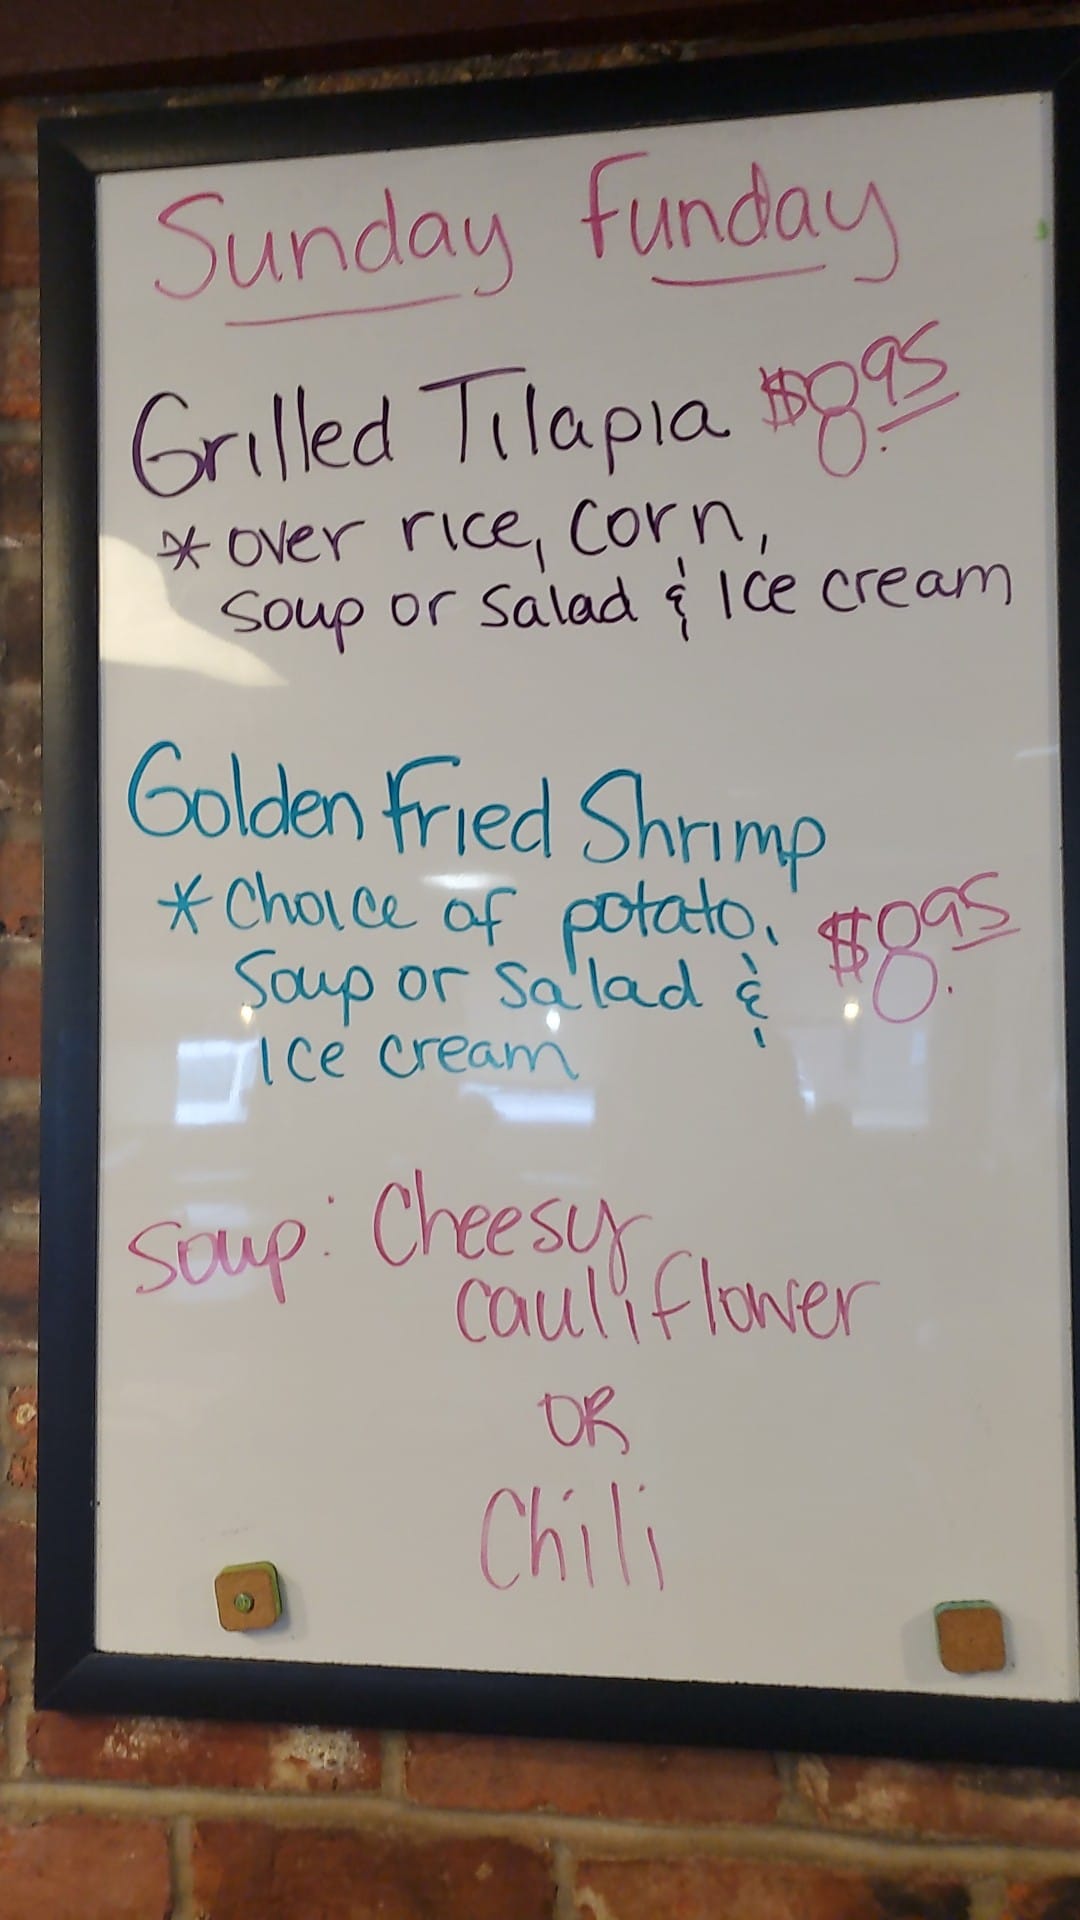 Sunday Funday
Grilled Tilapia $8.95
* over rice, corn,
soup or salad & Ice cream
Golden Fried Shrimp
* Choice of potato,
Soup or salad & $8.95
Ice cream
Soup: Cheesy
cauliflower
OR
Chili